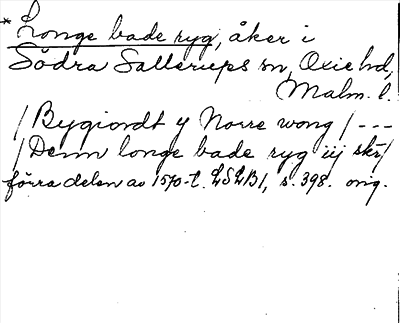 * Longe bade ryg, åker i
Södra Sallerups sn, Oxie hd,
Malm. l.
/ Bygiordt y Norre wong / ---
/ Denn longe bade ryg iij skr/
förra delen av 1570-t. LSLB1, s. 398. orig.